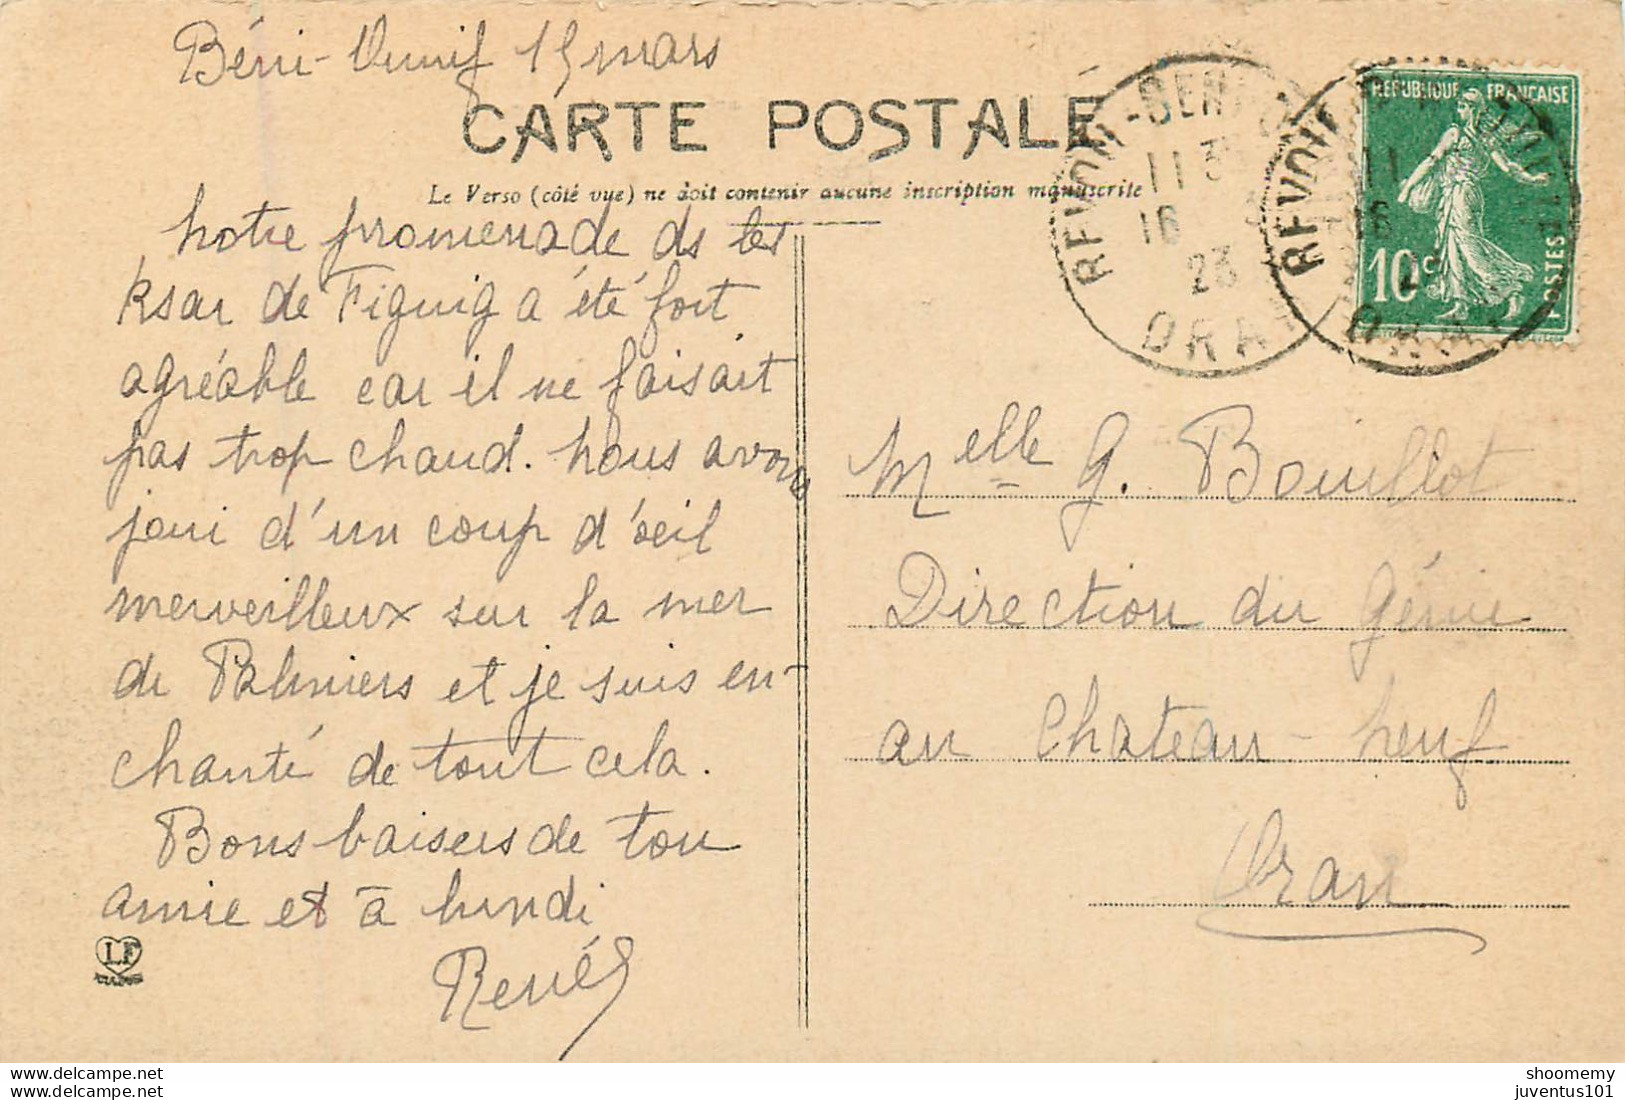 Béni-Ounif 15 mars
CARTE POSTALE
Le Verso (côté vue) ne doit contenir aucune inscription manuscrite
notre promenade ds les
ksar de Figuig a été fort
agréable car il ne faisait
pas trop chaud. nous avons
joui d'un coup d'oeil
merveilleux sur la mer
de Palmiers et je suis en-
chanté de tout cela.
Bons baisers de ton
amie et à lundi
Renée
LF
REVOIL-BENI
11 3
16
23
ORAN
REVOIL
11
16
ORAN
RÉPUBLIQUE FRANÇAISE
10c
POSTES
Melle G. Bouillot
Direction du Génie
au Chateau-neuf
Oran
shoomemy
juventus101